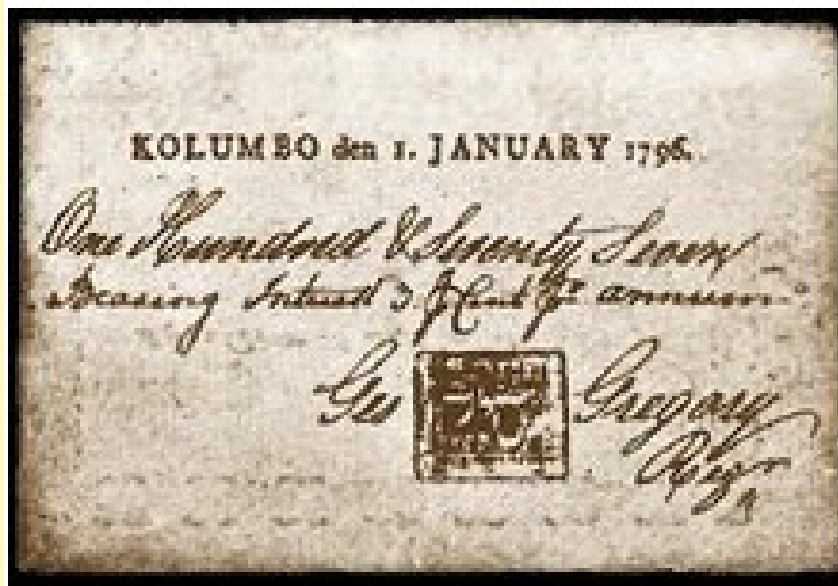 KOLUMBO den 1. JANUARY 1796.
One Hundred & Seventy Seven
Bearing Interest 3 ℔ Cent ℔r annum
Geo Gregory